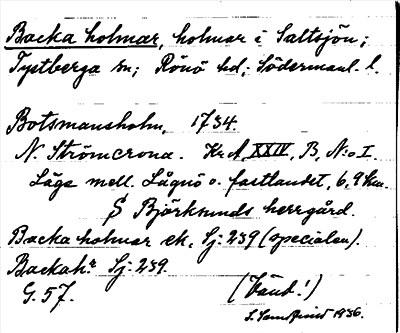 Backa holmar, holmar i Saltsjön;
Tystberga sn; Rönö hd; Södermanl. l.
Botsmansholm, 1734.
N. Strömcrona. Kr A XXIV, B, N:o I.
Läge mell. Långö o. fastlandet, 6,9 km.
S Björksunds herrgård.
Backa holmar ek. Sj: 239 (specialen).
Backah:r Sj: 239.
G. 57.
(Vänd!)
1936.